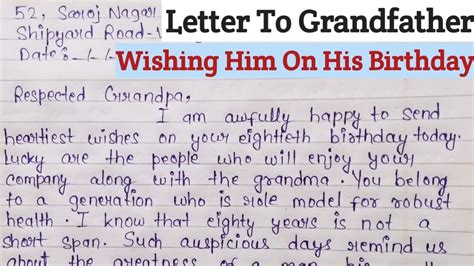 Letter To Grandfather
Wishing Him On His Birthday
52, Saroj Nagar
Shipyard Road-
Date:-/-/-
Respected Grandpa,
I am awfully happy to send
heartiest wishes on your eightieth birthday today.
lucky are the people who will enjoy your
company along with the grandma. You belong
to a generation who is role model for robust
health. I know that eighty years is not a
short span. Such auspicious days remind us
about the greatness of a man